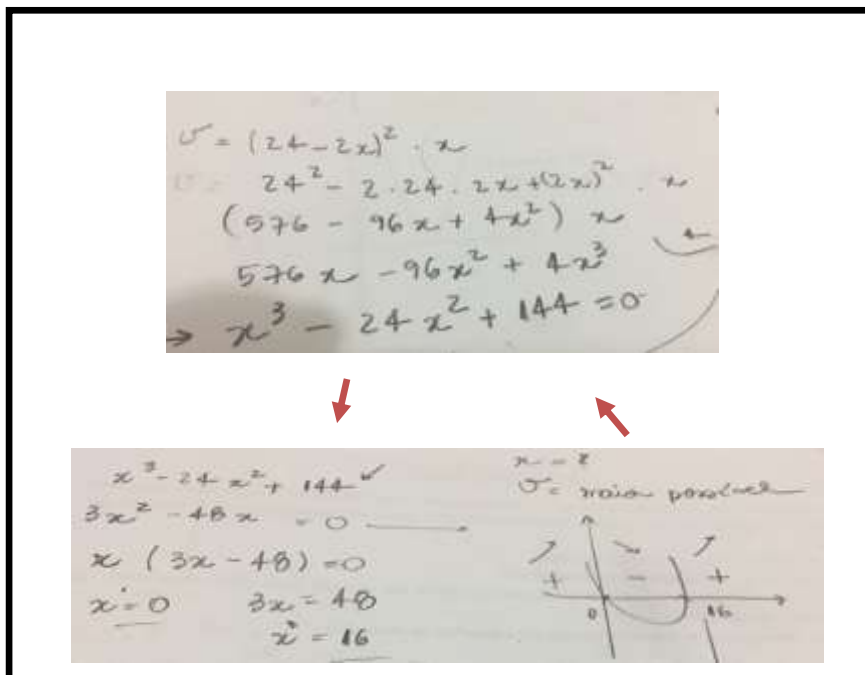 V = (24 - 2x)² · x
24² - 2 · 24 · 2x + (2x)² · x
(576 - 96x + 4x²) x
576x - 96x² + 4x³
→ x³ - 24x² + 144 = 0
x³ - 24x² + 144 ✓
3x² - 48x = 0
x (3x - 48) = 0
x' = 0 3x = 48
x" = 16
x = ?
V = maior possível
+ - +
0 16